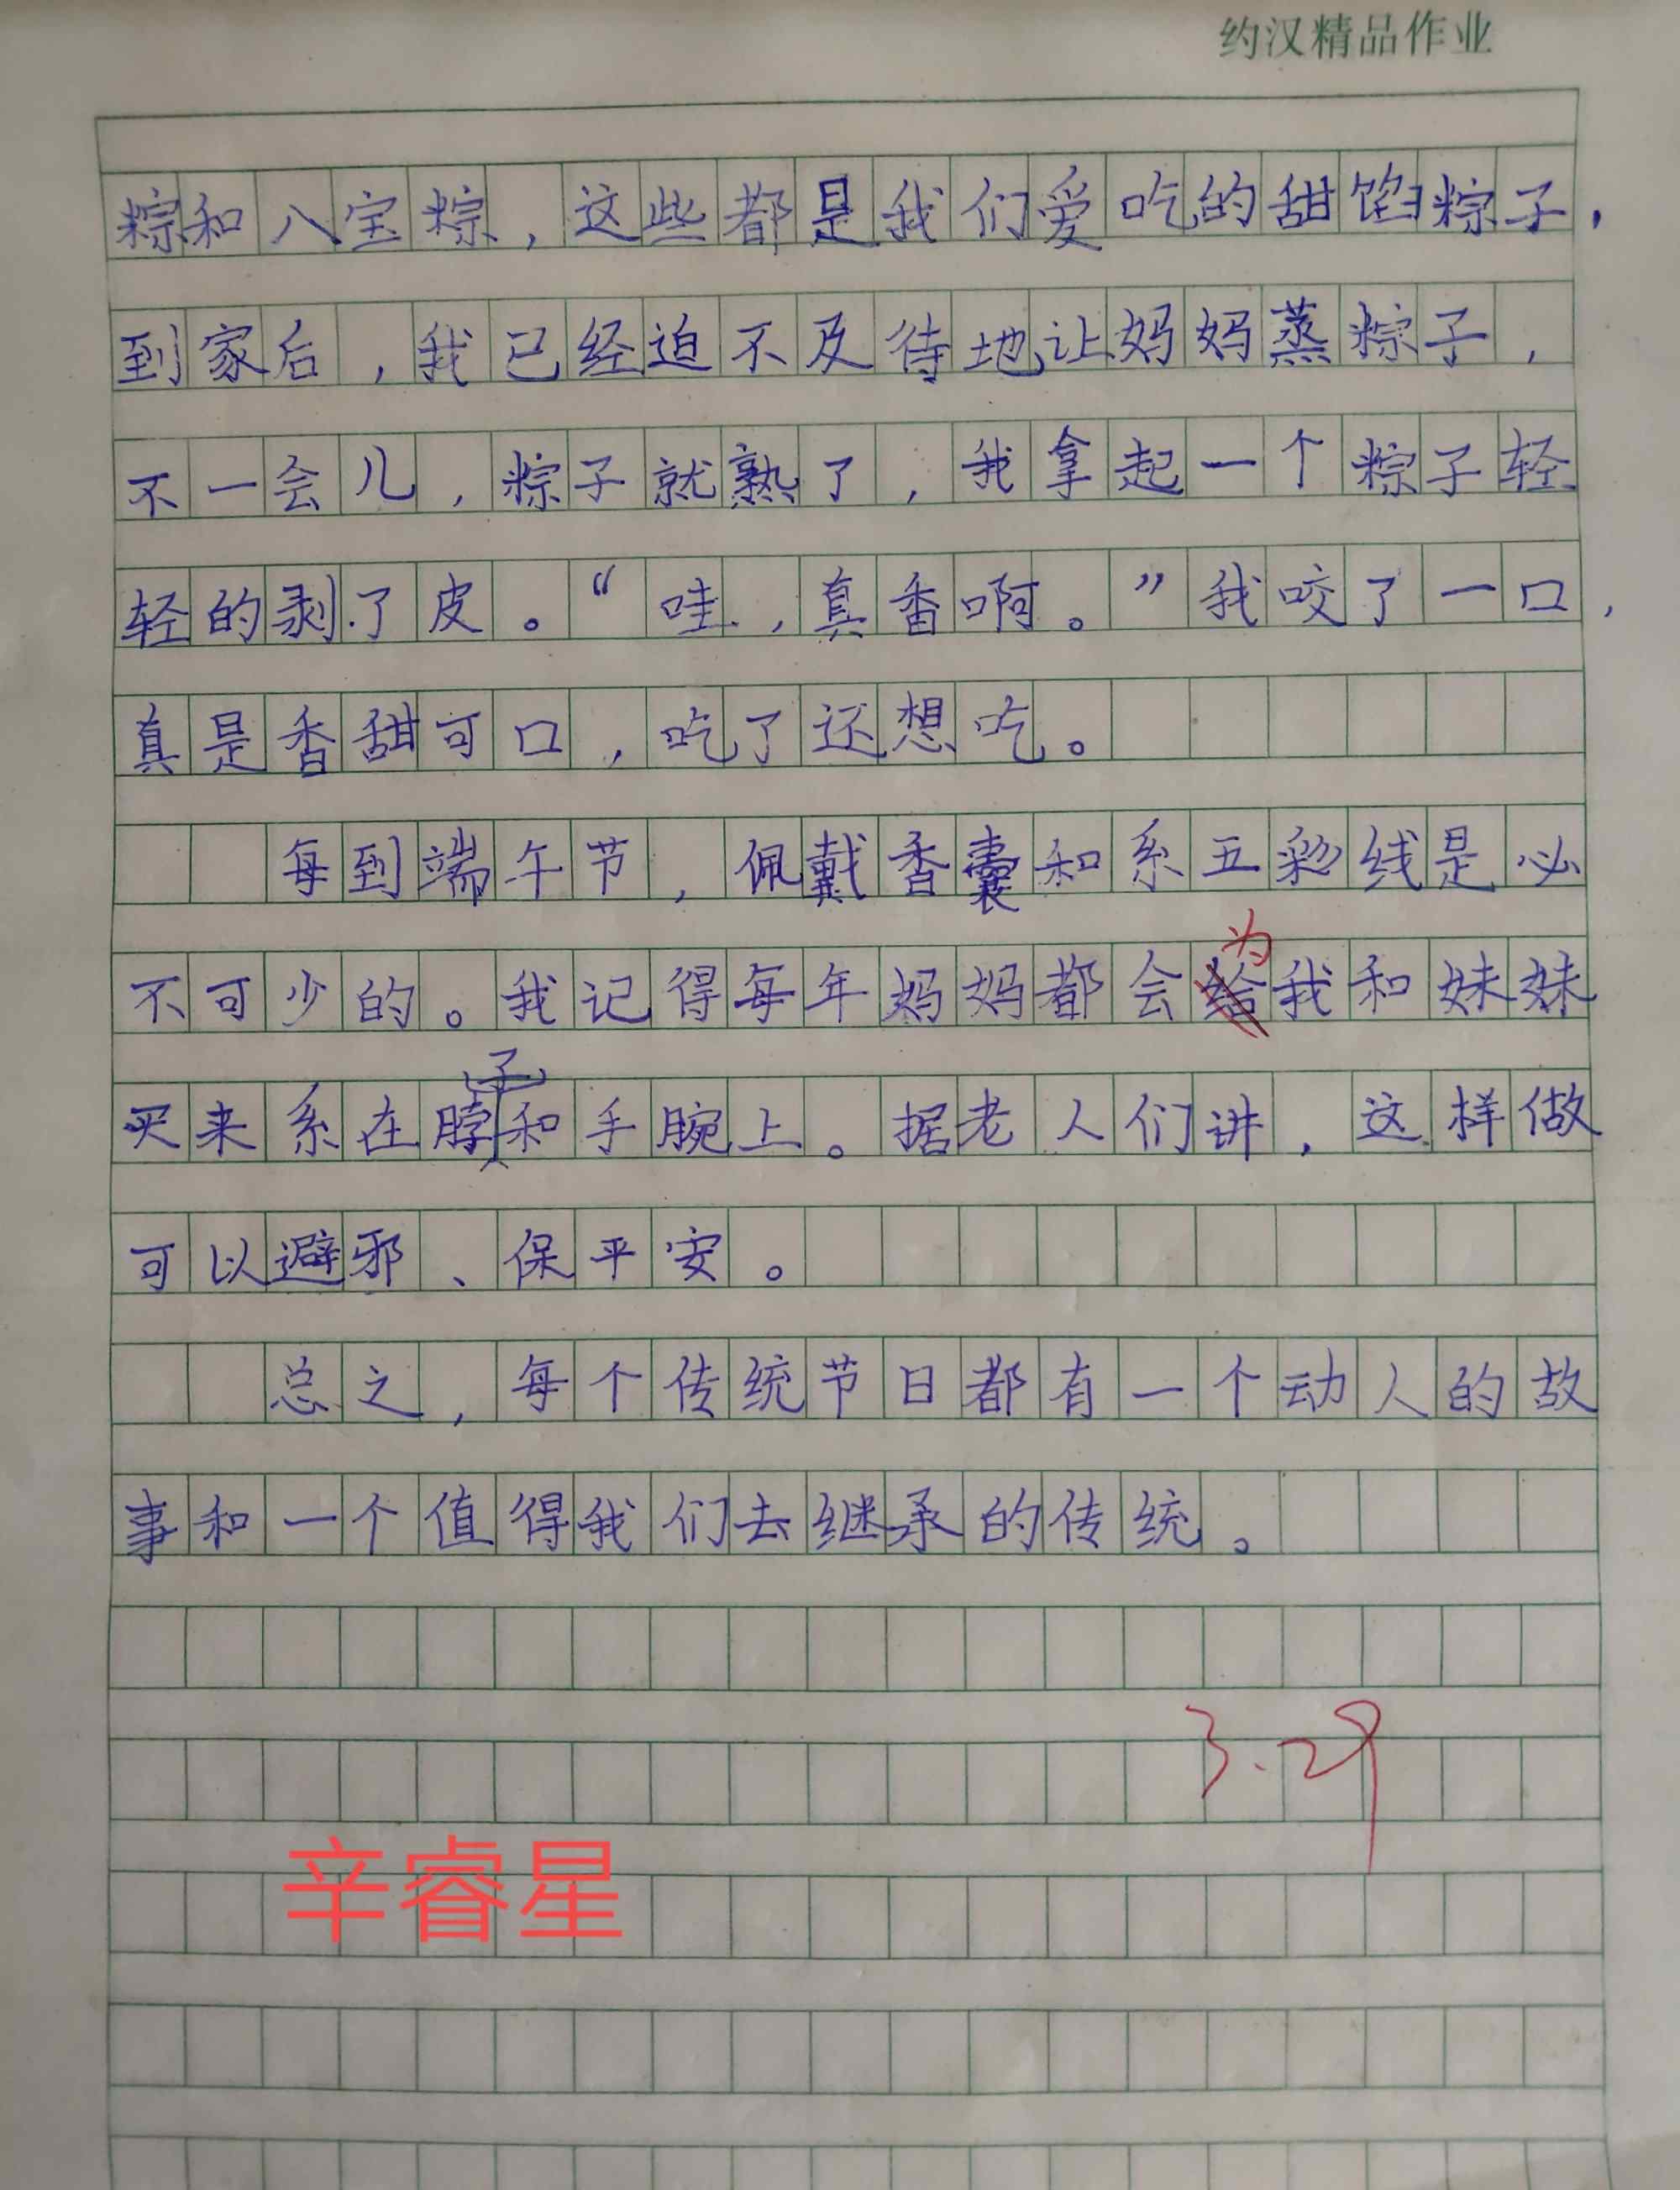 约汉精品作业
粽和八宝粽，这些都是我们爱吃的甜馅粽子，
到家后，我已经迫不及待地让妈妈蒸粽子，
不一会儿，粽子就熟了，我拿起一个粽子轻
轻的剥了皮。“哇，真香啊。”我咬了一口，
真是香甜可口，吃了还想吃。
每到端午节，佩戴香囊和系五彩线是必
不可少的。我记得每年妈妈都会为我和妹妹
买来系在脖子和手腕上。据老人们讲，这样做
可以避邪、保平安。
总之，每个传统节日都有一个动人的故
事和一个值得我们去继承的传统。
3.29
辛睿星